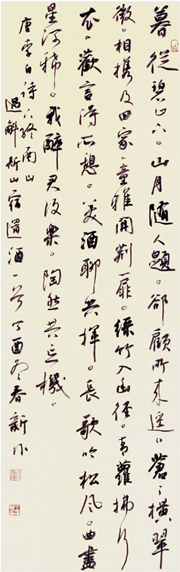 暮從碧山下。山月随人歸。卻顧所来徑。蒼蒼橫翠
微。相攜及田家。童稚開荆扉。綠竹入幽徑。青蘿拂行
衣。歡言得所憩。美酒聊共揮。長歌吟松风。曲盡
星河稀。我醉君復樂。陶然共忘機。
唐李白诗下终南山
過斛斯山宿置酒一首丁酉年春新作